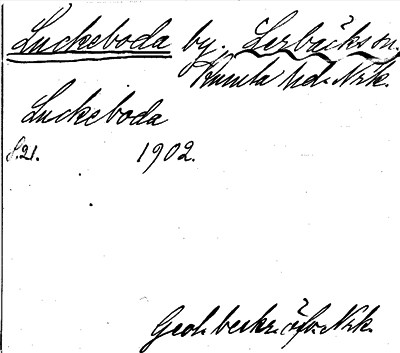 Luckeboda by. Lerbäcks sn.
Kumla hd. Nrk.
Luckeboda
s.21. 1902.
Geol. beskr. öfv. Nrk.